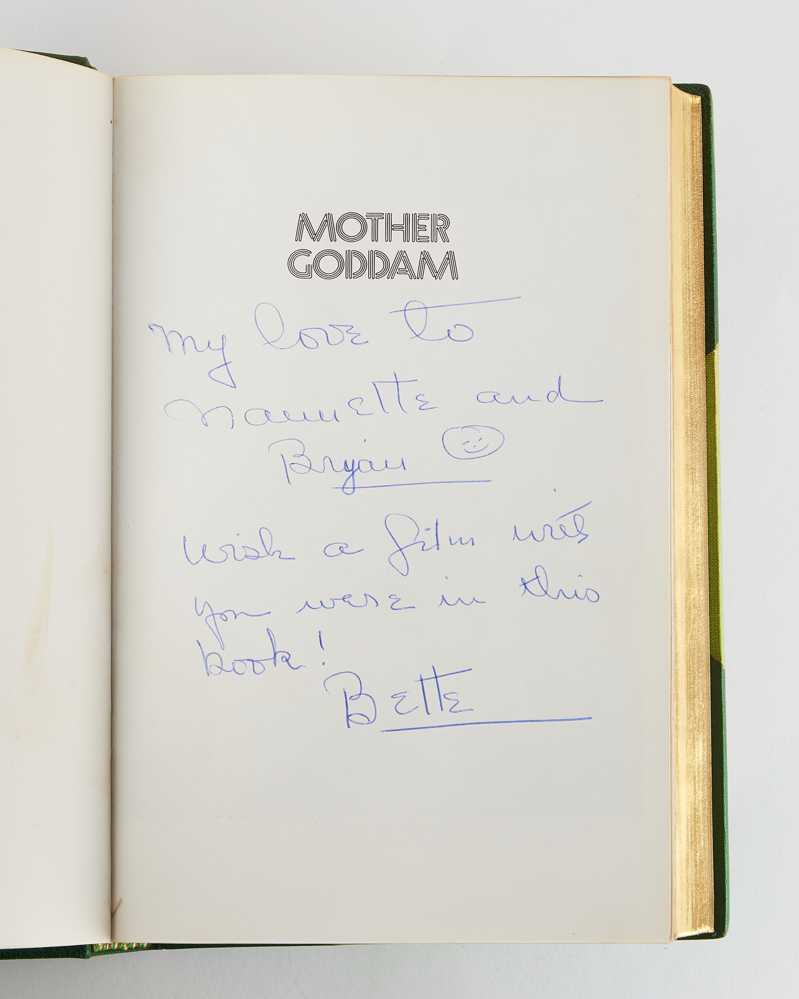 MOTHER
GODDAM
My love to
Nannette and
Bryan
Wish a film with
you were in this
book!
Bette